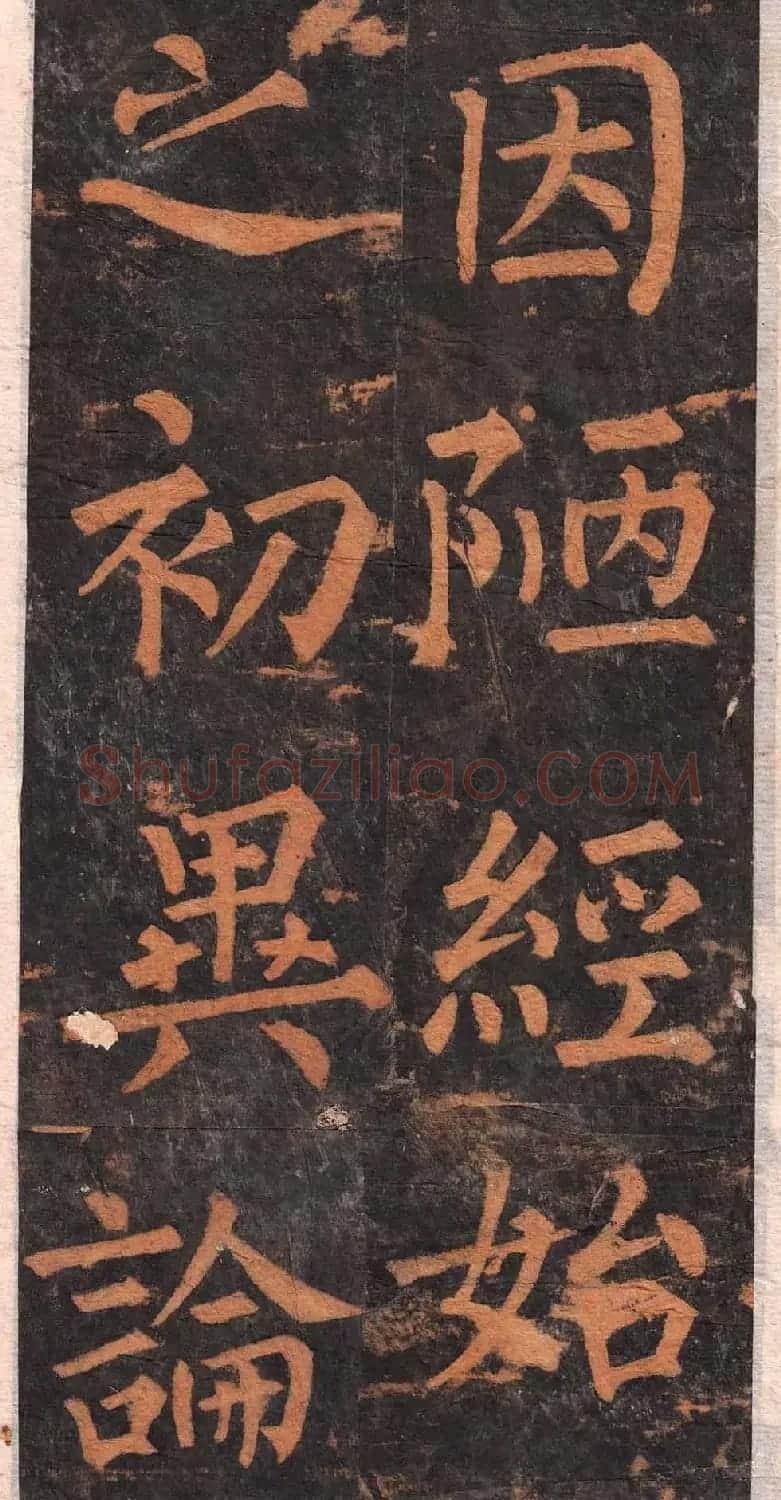 因陋經始
之初異論
Shufaziliao.COM